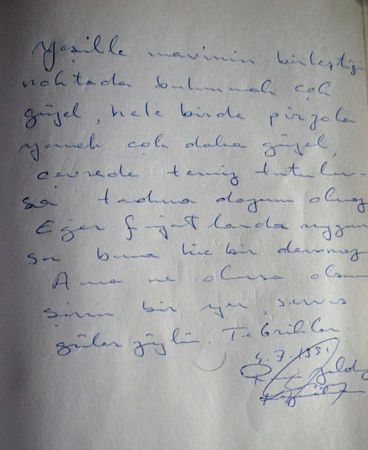 Yeşille mavinin birleştiği
noktada bulunmak çok
güzel, hele birde pirzola
yemek çok daha güzel,
çevrede temiz tutulur-
sa tadına doyum olmaz
Eğer fiyatlarda uygun
sa buna hiç bir denmez
Ama ne olursa olsun
şirin bir yer, servis
güler yüzlü. Tebrikler.